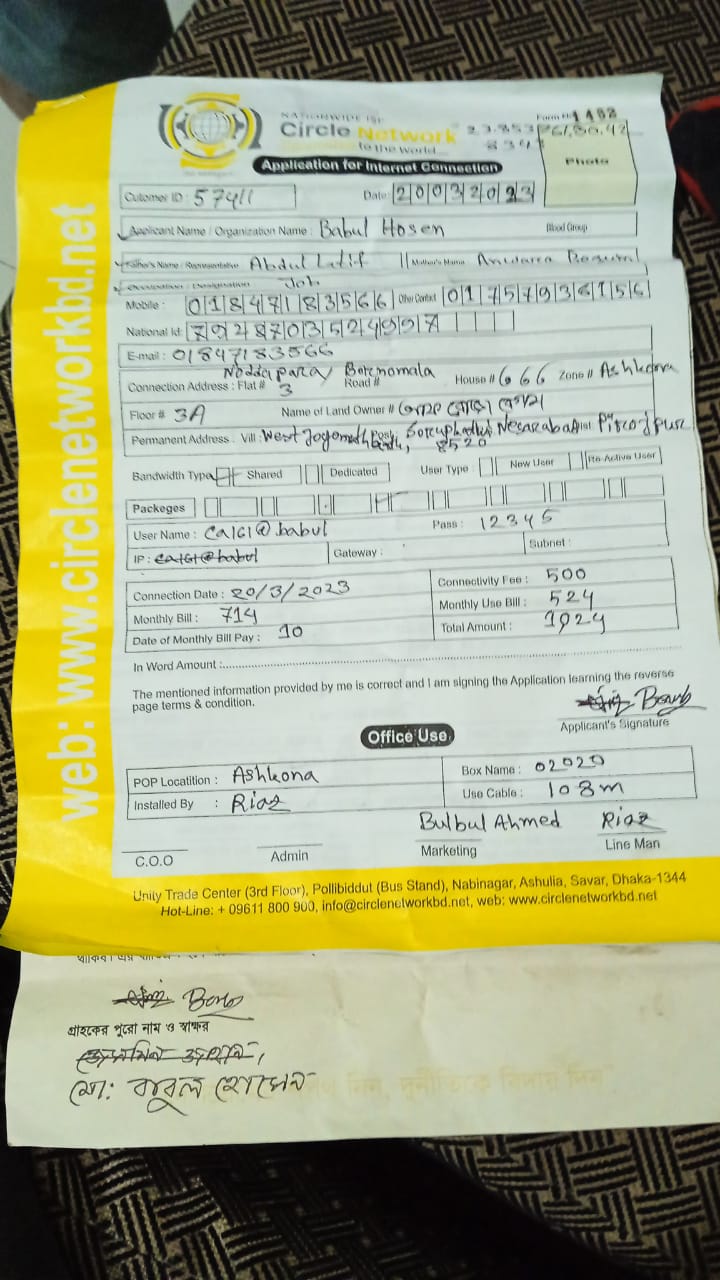 NATIONWIDE ISP
Form No 1482
Circle Network
to the world...
23.853
834
Application for Internet Connection
Photo
Cutomer ID : 57411
Date: 20032023
Applicant Name / Organization Name : Babul Hosen
Blood Group
Father's Name / Representative Abdul Latif Mother's Name Anwara Begum
Occupation / Designation Job
Mobile : 01847183566 Other Contact 01757936156
National Id: 7928703524997
E-mail : 01847183566
Noddapara/ Bornomala
Connection Address : Flat # 3 Road # House # 666 Zone # Ashkona
Floor # 3A Name of Land Owner #
Permanent Address : Vill: West Post Nesarabad Dist Pirojpur
8520
Bandwidth Type Shared Dedicated User Type New User Re-Active User
Packeges
User Name : ca161@babul Pass : 12345
IP : ca161@babul Gateway : Subnet :
Connection Date : 20/3/2023 Connectivity Fee : 500
Monthly Bill : 714 Monthly Use Bill : 524
Date of Monthly Bill Pay : 10 Total Amount : 1024
In Word Amount :
The mentioned information provided by me is correct and I am signing the Application learning the reverse
page terms & condition.
Applicant's Signature
Office Use
POP Locatition : Ashkona Box Name : 02020
Installed By : Riaz Use Cable : 108m
Bulbul Ahmed Riaz
C.O.O Admin Marketing Line Man
Unity Trade Center (3rd Floor), Pollibiddut (Bus Stand), Nabinagar, Ashulia, Savar, Dhaka-1344
Hot-Line: + 09611 800 900, info@circlenetworkbd.net, web: www.circlenetworkbd.net
web: www.circlenetworkbd.net
গ্রাহকের পুরো নাম ও স্বাক্ষর
মো: বাবুল হোসেন